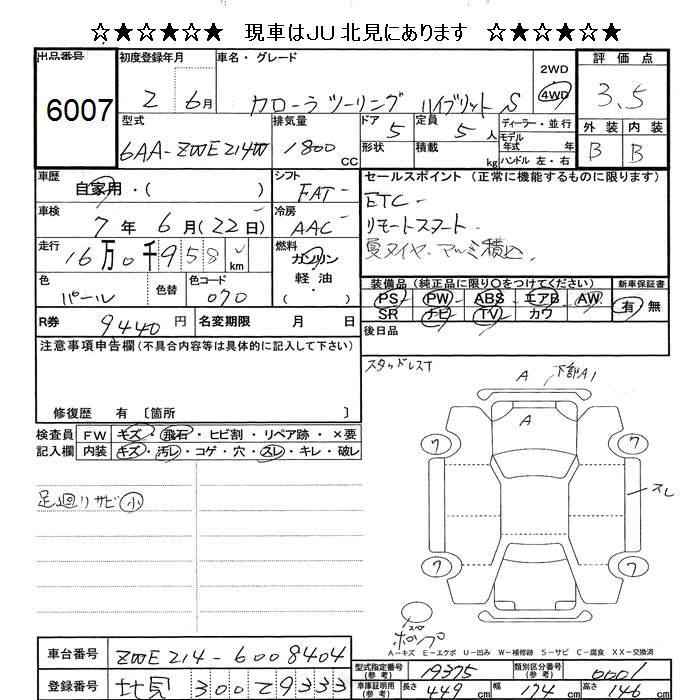 ☆★☆★☆★☆ 現車はJU北見にあります ☆★☆★☆★☆
出品番号 初度登録年月 車名・グレード 評価点
6007
2 6月 カローラツーリング ハイブリットS 2WD 4WD 3.5
型式 排気量 ドア 5 定員 5 人 ディーラー・並行 外装 内装
6AA-ZWE214W 1800 CC 形状 積載 kg モデル年式 年 ハンドル 左・右 B B
車歴 自家用・( ) シフト FAT セールスポイント (正常に機能するものに限ります)
車検 7年 6月(22日) 冷房 AAC ETC
リモートスタート
走行 16万0千958km 燃料 ガソリン 軽油・( ) 夏タイヤ.アルミ積込.
色 パール 色替 色コード 070 装備品(純正品に限り○をつけてください) 新車保証書
PS PW ABS エアB AW 有 無
SR ナビ TV カワ
R券 9440円 名変期限 月 日 後日品
注意事項申告欄(不具合内容等は具体的に記入して下さい) スタッドレスT
A 下部A1
A
修復歴 有〔箇所 〕
検査員 FW キズ・飛石・ヒビ割・リペア跡・×要
記入欄 内装 キズ・汚レ・コゲ・穴・スレ・キレ・破レ
7 7
スレ
足廻りサビ小
7 7
スペア
ポンプ
A-キズ E-エクボ U-凹み W-補修跡 S-サビ C-腐食 XX-交換済
車台番号 ZWE214-6008404 型式指定番号(参考) 19375 類別区分番号(参考) 0001
登録番号 北見 300 29333 車庫証明用(参考) 長さ 449cm 幅 174cm 高さ 146cm